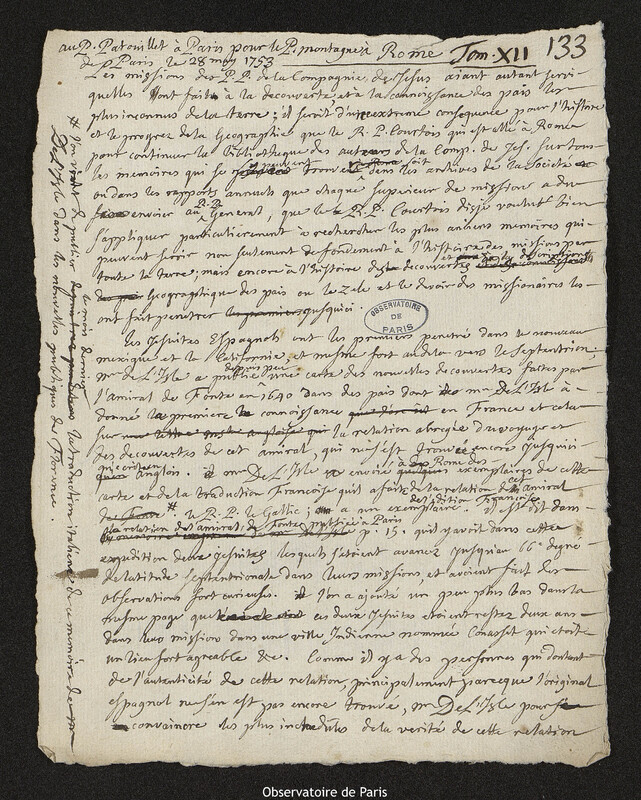 au P. Patouillet à Paris pour le P. montagne à Rome Tom. XII 133
de Paris le 28 may 1753
Les missions des P.P. de la Compagnie de Jesus aiant autant servi
qu'elles ont fait à la decouverte et à la connoissance des pais les
plus inconnus de la terre; il seroit d'une extreme consequence pour l'histoire
et le progrez de la Geographie que le R. P. Courtois qui est allé à Rome
pour continuer la Bibliotheque des auteurs de la Comp. de Jes. sur tous
les memoires qui se peuvent trouver soit dans les archives de la Societé
ou dans les rapports annuels que chaque superieur de missions a du
envoier au R.P. General, que le R. P. Courtois disje voulut bien
s'appliquer particulierement à rechercher les plus anciens memoires qui
peuvent servir non seulement de fondement à l'histoire des missions par
toute la terre; mais encore à l'histoire des decouvertes et des descriptions
Geographique des pais ou le zele et le devoir des missionaires les
ont fait penetrer jusquici.
OBSERVATOIRE DE PARIS
Les Jesuites Espagnols ont les premiers penetré dans le nouveau
mexique et la Californie, et mesme fort audela vers le Septentrion;
mr De L'Isle a depuis peu publié une carte des nouvelles decouvertes faites par
l'amiral de Fonte en 1640 dans des pais dont mr De L'Isle a
donné la premiere connoissance en France et cela
sur la relation abregée du voyage et
des decouvertes de cet amiral, qui ne s'est trouvée encore jusquici
qu'en Anglois. mr De L'Isle a envoié à Rome des exemplaires de cette
carte et de la traduction Francoise qu'il a faite de la relation de cet amiral
le R. P. le Gallic; a un exemplaire de l'edition Francoise il est dit dans
la relation de l'amiral de Fonte publiée à Paris
p. 15. qu'il y avoit dans cette
expedition deux Jesuites lesquels s'etoient avancez jusqu'au 66e degré
de latitude septentrionale dans leurs missions, et avoient fait des
observations fort curieuses. il l'on a ajouté un peu plus bas dans la
mesme page que ces deux Jesuites etoient restez deux ans
dans leur mission dans une ville Indienne nommée Conasset qui etoit
un lieu fort agreable &c. Comme il y a des personnes qui doutent
de l'autenticité de cette relation, principalement parceque l'original
espagnol ne s'en est pas encore trouvé, mr De L'Isle pour
convaincre les plus incredules de la verité de cette relation
la traduction italienne de ce memoire de mr
De L'Isle dans les nouvelles publiques de Florence
Observatoire de Paris